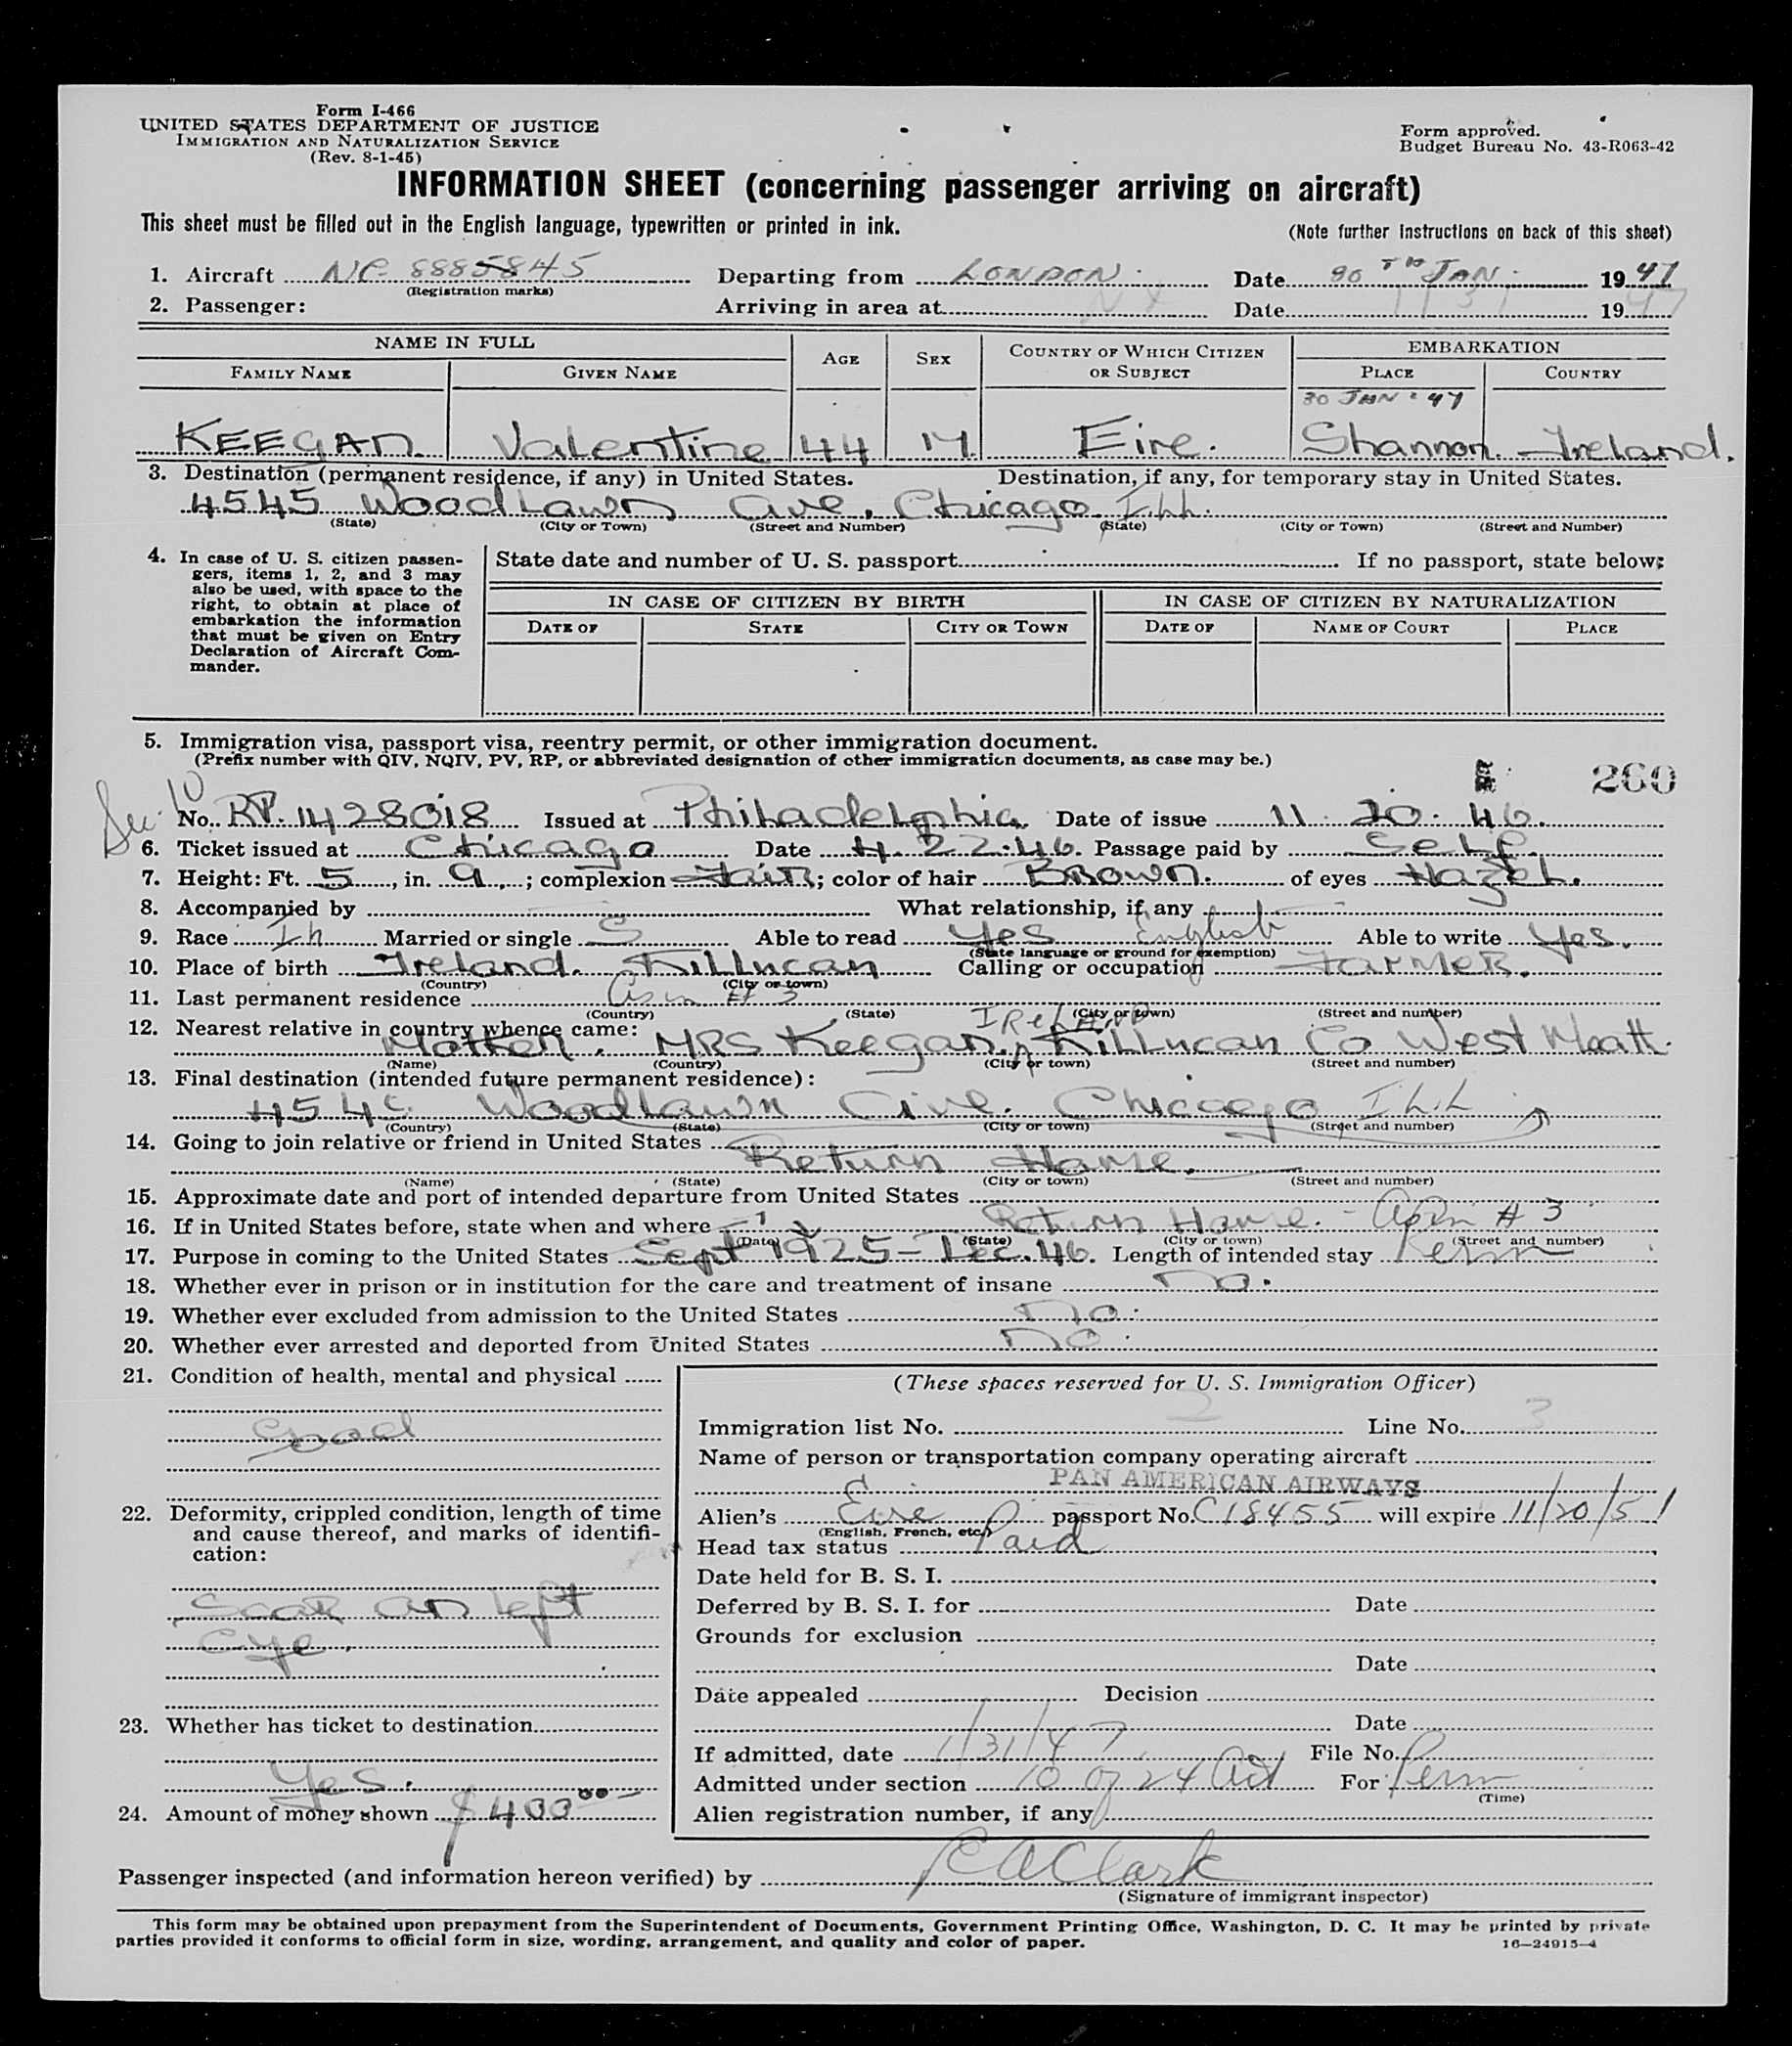 Form I-466
UNITED STATES DEPARTMENT OF JUSTICE
IMMIGRATION AND NATURALIZATION SERVICE
(Rev. 8-1-45)
Form approved.
Budget Bureau No. 43-R063-42
INFORMATION SHEET (concerning passenger arriving on aircraft)
This sheet must be filled out in the English language, typewritten or printed in ink.
(Note further instructions on back of this sheet)
1. Aircraft NC 8885845 Departing from LONDON Date 30TH JAN. 1947
(Registration marks)
2. Passenger: Arriving in area at NY Date 1 31 1947
NAME IN FULL AGE SEX COUNTRY OF WHICH CITIZEN OR SUBJECT EMBARKATION
FAMILY NAME GIVEN NAME PLACE COUNTRY
30 JAN 47
KEEGAN Valentine 44 M Eire. Shannon. Ireland.
3. Destination (permanent residence, if any) in United States. Destination, if any, for temporary stay in United States.
4545 Woodlawn Ave. Chicago Ill.
(State) (City or Town) (Street and Number) (State) (City or Town) (Street and Number)
4. In case of U. S. citizen passengers, items 1, 2, and 3 may also be used, with space to the right, to obtain at place of embarkation the information that must be given on Entry Declaration of Aircraft Commander.
State date and number of U. S. passport. If no passport, state below:
IN CASE OF CITIZEN BY BIRTH IN CASE OF CITIZEN BY NATURALIZATION
DATE OF STATE CITY OR TOWN DATE OF NAME OF COURT PLACE
5. Immigration visa, passport visa, reentry permit, or other immigration document.
(Prefix number with QIV, NQIV, PV, RP, or abbreviated designation of other immigration documents, as case may be.)
260
Sec. 10
No. RP. 1428018 Issued at Philadelphia Date of issue 11. 20. 46.
6. Ticket issued at Chicago Date 4. 22. 46. Passage paid by Self.
7. Height: Ft. 5, in. 9; complexion Fair; color of hair Brown. of eyes Hazel.
8. Accompanied by What relationship, if any
9. Race Ir Married or single S Able to read yes English Able to write Yes.
(State language or ground for exemption)
10. Place of birth Ireland. Killucan Calling or occupation Farmer.
(Country) (City or town)
11. Last permanent residence As in # 3
(Country) (State) (City or town) (Street and number)
12. Nearest relative in country whence came: IRELAND
Mother. MRS Keegan. Killucan Co West Meath.
(Name) (Country) (City or town) (Street and number)
13. Final destination (intended future permanent residence):
4545 Woodlawn Ave. Chicago ILL
(Country) (State) (City or town) (Street and number)
14. Going to join relative or friend in United States
Return Home.
(Name) (State) (City or town) (Street and number)
15. Approximate date and port of intended departure from United States
16. If in United States before, state when and where Return Home. - As in # 3
(Date) (State) (City or town) (Street and number)
17. Purpose in coming to the United States Sept 1925 - Dec. 46. Length of intended stay Perm
18. Whether ever in prison or in institution for the care and treatment of insane no.
19. Whether ever excluded from admission to the United States no.
20. Whether ever arrested and deported from United States no
21. Condition of health, mental and physical
Good
22. Deformity, crippled condition, length of time and cause thereof, and marks of identification:
Scar on left
eye.
23. Whether has ticket to destination
Yes.
24. Amount of money shown $400.00
(These spaces reserved for U. S. Immigration Officer)
Immigration list No. 2 Line No. 3
Name of person or transportation company operating aircraft
PAN AMERICAN AIRWAYS
Alien's Eire passport No. C18455 will expire 11/20/51
(English, French, etc.)
Head tax status Paid
Date held for B. S. I.
Deferred by B. S. I. for Date
Grounds for exclusion
Date
Date appealed Decision
Date
If admitted, date 1/31/47 File No.
Admitted under section 10 of 24 Act For Perm
(Time)
Alien registration number, if any
Passenger inspected (and information hereon verified) by Clark
(Signature of immigrant inspector)
This form may be obtained upon prepayment from the Superintendent of Documents, Government Printing Office, Washington, D. C. It may be printed by private
parties provided it conforms to official form in size, wording, arrangement, and quality and color of paper.
16—24915-4